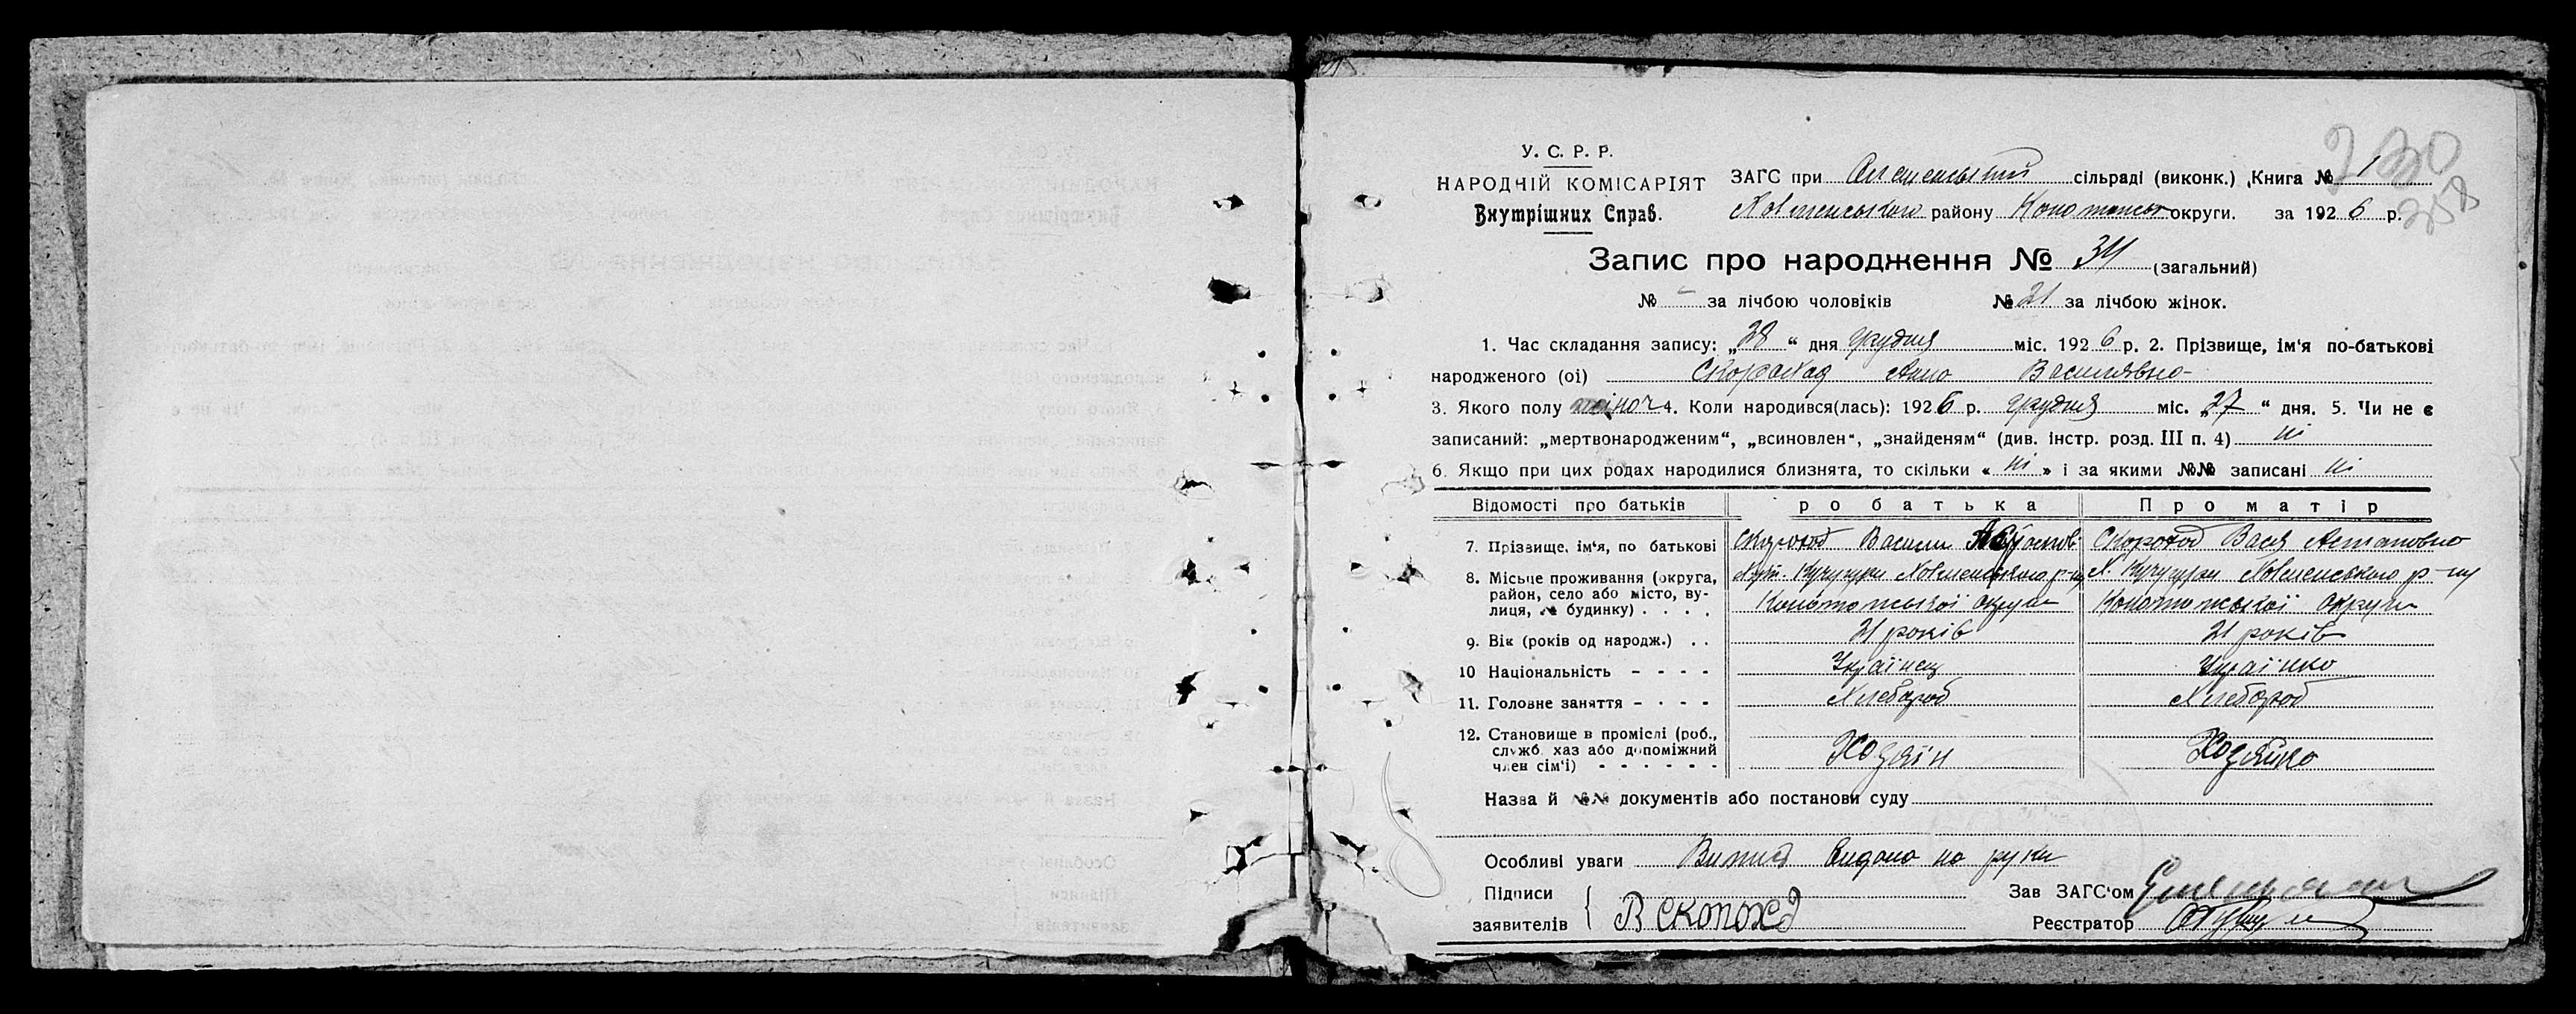 230
У. С. Р. Р.
НАРОДНІЙ КОМІСАРІЯТ
Внутрішних Справ.
ЗАГС при сільраді (виконк.) Книга № 1
району Конотопськ округи. за 1926 р.
Запис про народження № 34 (загальний)
№ - за лічбою чоловіків № 21 за лічбою жінок.
1. Час складання запису: „28 “ дня грудня міс. 1926 р. 2. Прізвище, ім‘я по-батькові
народженого (ої) Скороход Анна Василівна
3. Якого полу жіноч 4. Коли народився(лась): 1926 р. грудня міс. „27 “ дня. 5. Чи не є
записаний: „мертвонародженим“, „всиновлен“, „знайденям“ (див. інстр. розд. III п. 4) ні
6. Якщо при цих родах народилися близнята, то скільки « ні » і за якими №№ записані ні
Відомості про батьків р о б а т ь к а П р о м а т і р
7. Прізвище, ім‘я, по батькові Скороход Василь Скороход Вася Астаповна
8. Місьце проживання (округа, район, село або місто, вулиця, № будинку) . . . . Хут. Кучугури р-ну Х. Кучугури р-ну
Конотопської округи Конотопської округи
9. Вік (років од народж.) . . 21 років 21 років
10 Національність - - - - Українец Українка
11. Головне заняття - - - - Хлебороб Хлебороб
12. Становище в промислі (роб., служб. хаз або допоміжний член сім‘ї) - - - - - - Хозяїн Хозяйка
Назва й №№ документів або постанови суду
Особливі уваги Випис видано на руки
Підписи
заявителів { В Скопохд
Зав ЗАГС‘ом
Реєстратор